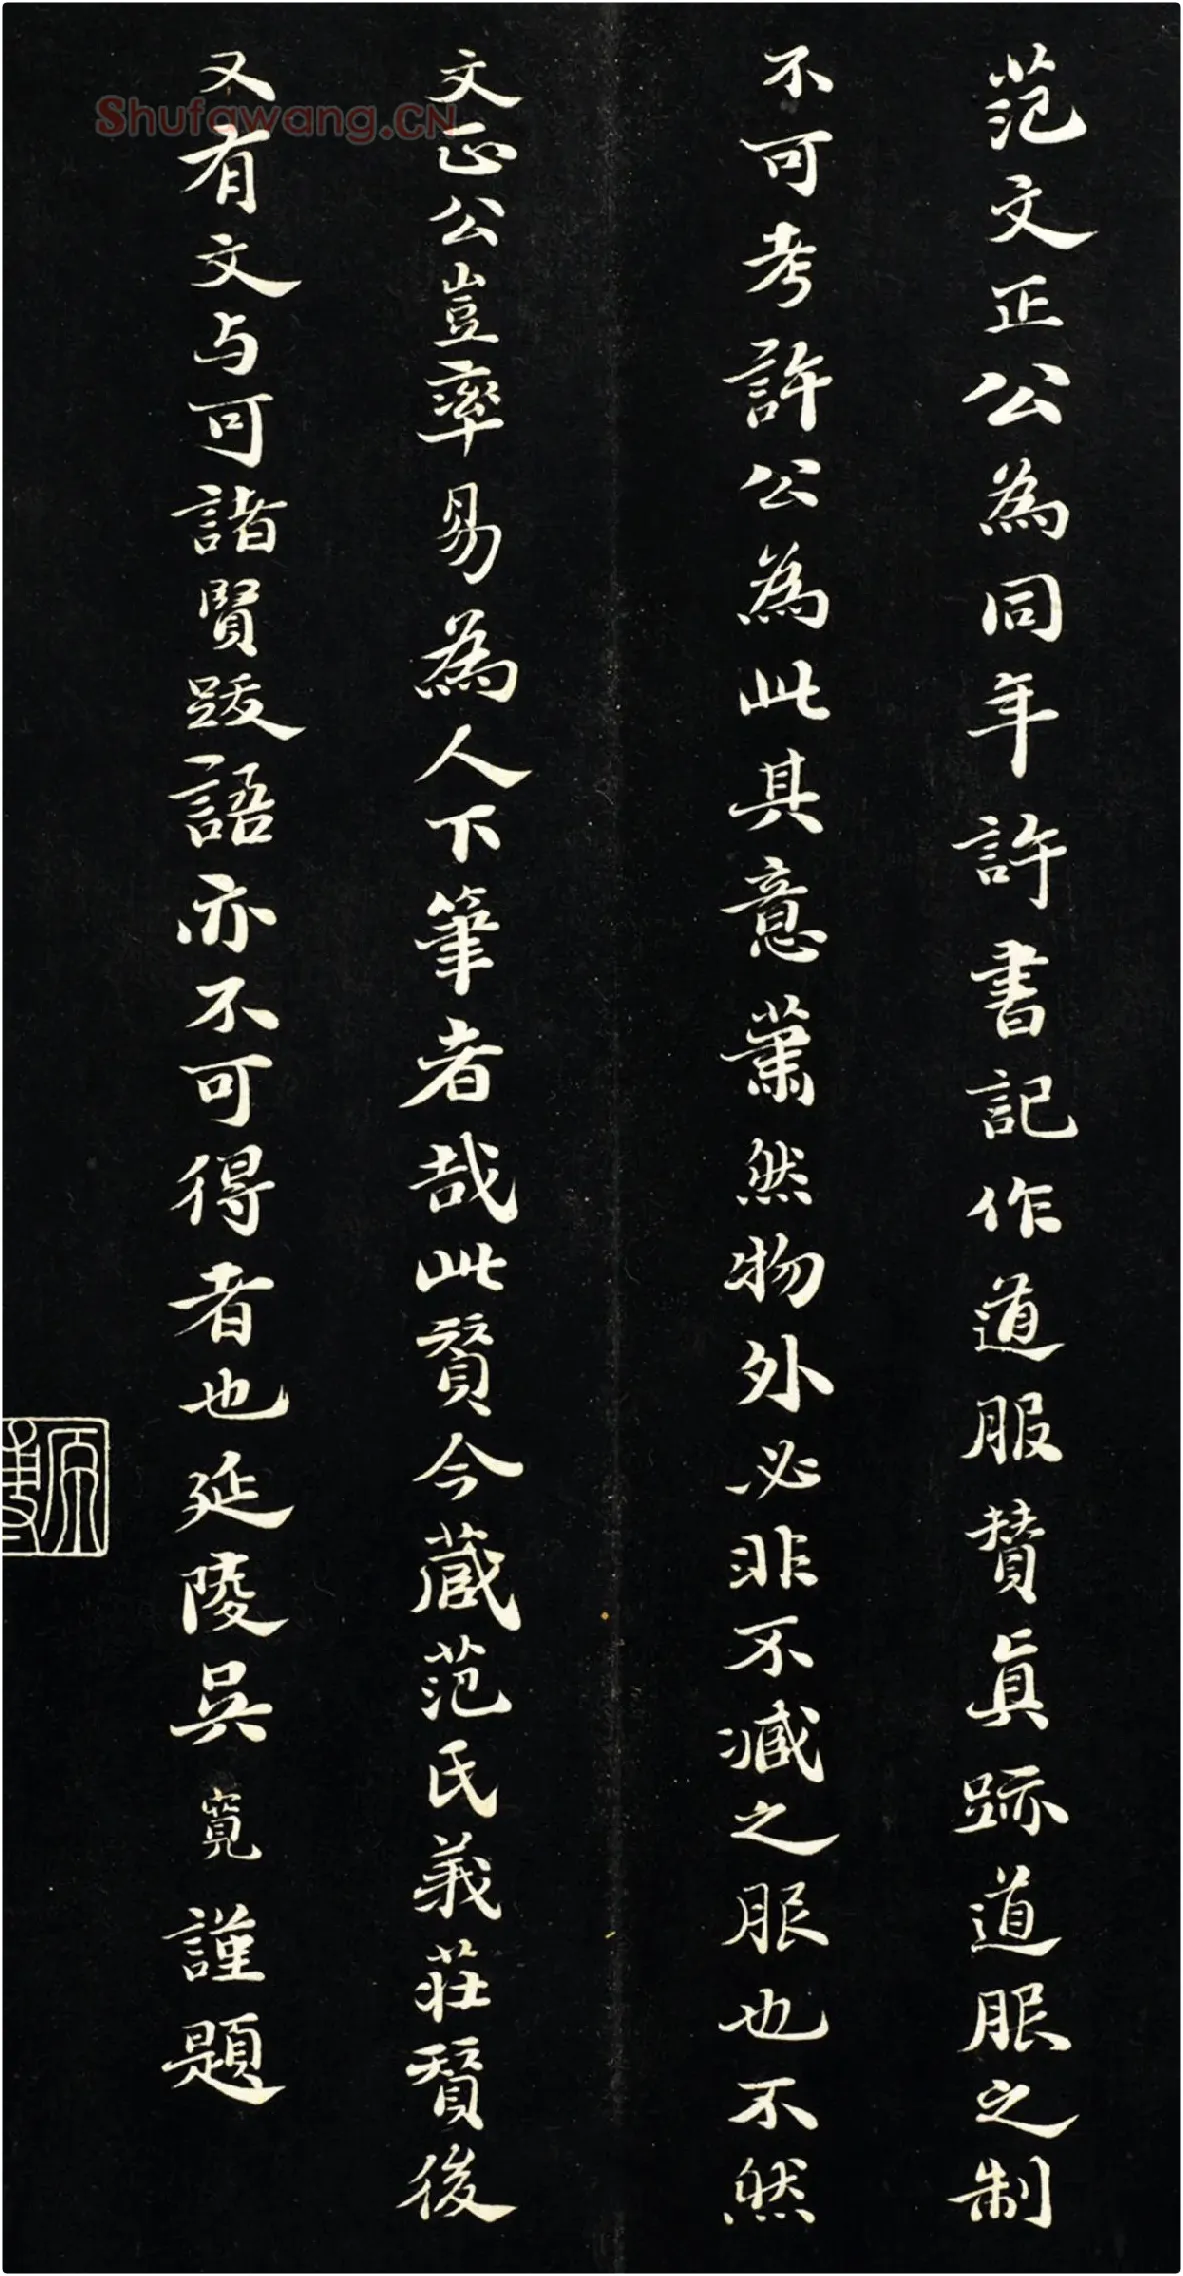 范文正公為同年許書記作道服贊真跡道服之制
不可考許公為此其意蕭然物外必非不臧之服也不然
文正公豈率易為人下筆者哉此贊今藏范氏義莊贊後
又有文与可諸賢跋語亦不可得者也延陵吳寬謹題
Shufawang.CN